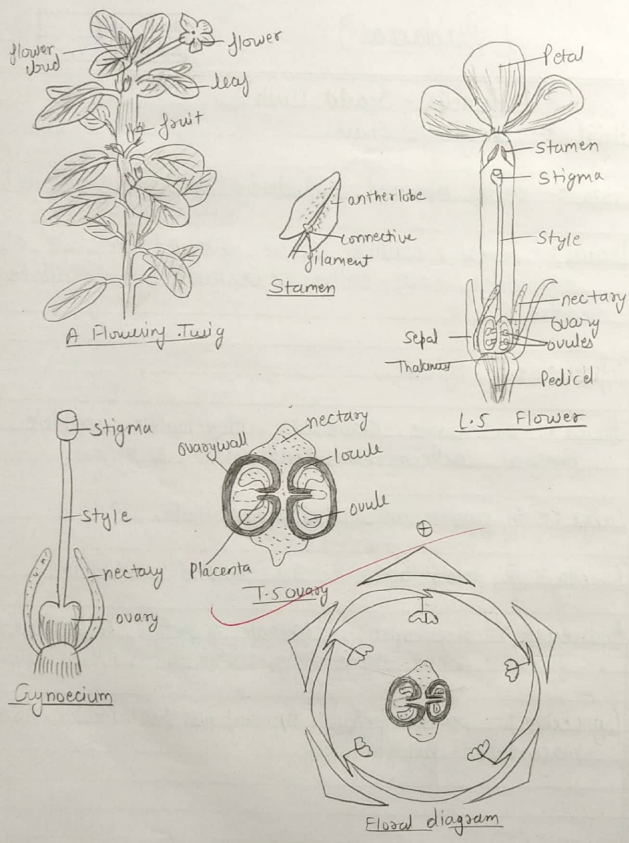 flower bud
flower
leaf
fruit
A Flowering Twig
anther lobe
connective
filament
Stamen
Petal
Stamen
Stigma
Style
nectary
ovary
ovules
Sepal
Thalamus
Pedicel
L.S Flower
Stigma
Style
nectary
ovary
Gynoecium
nectary
ovary wall
locule
ovule
Placenta
T.S ovary
Floral diagram